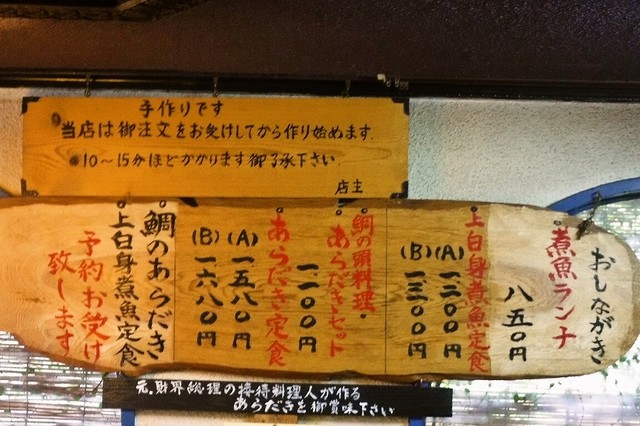 手作りです
当店は御注文をお受けしてから作り始めます。
●10〜15分ほどかかります御了承下さい
店主
おしながき
煮魚ランチ
八五〇円
上白身煮魚定食
(A)一二〇〇円
(B)一三〇〇円
鯛の頭料理・
あらだきセット
一一〇〇円
あらだき定食
(A)一五八〇円
(B)一六八〇円
鯛のあらだき
上白身煮魚定食
予約お受け
致します
元.財界総理の接待料理人が作る
あらだきを御賞味下さい